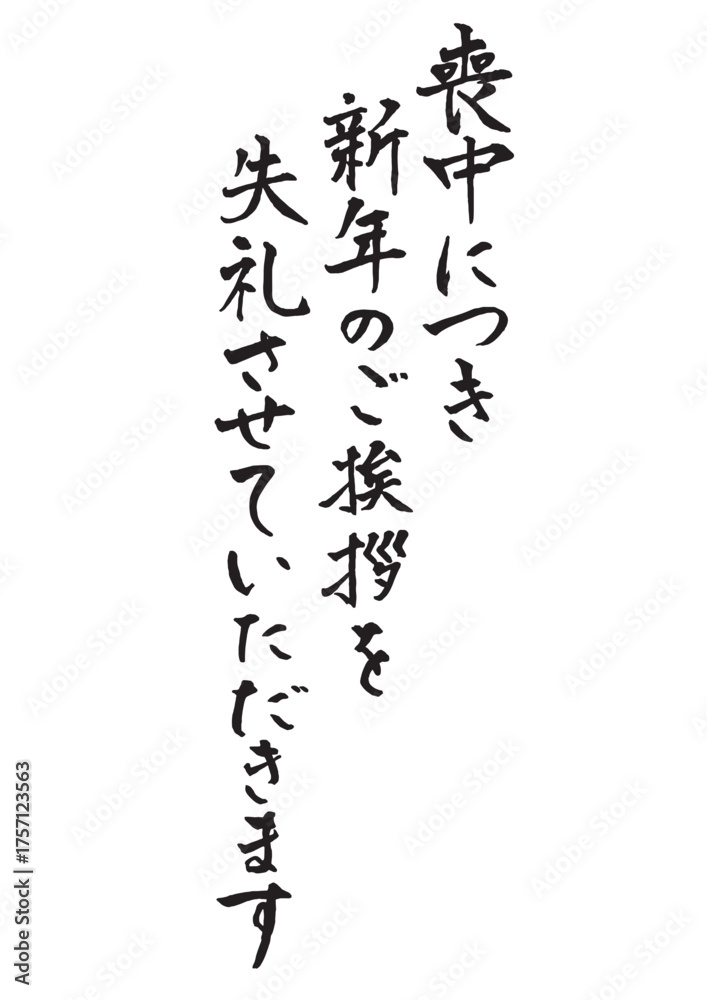 喪中につき
新年のご挨拶を
失礼させていただきます
Adobe Stock | #1757123563
Adobe Stock